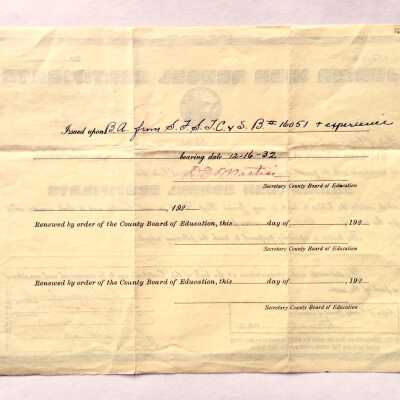 Issued upon B.A. from S.F.S.T.C. & S. B # 16051 + experience
bearing date 12-16-32
Secretary County Board of Education
, 192
Renewed by order of the County Board of Education, this day of , 192
Secretary County Board of Education
Renewed by order of the County Board of Education, this day of , 192
Secretary County Board of Education